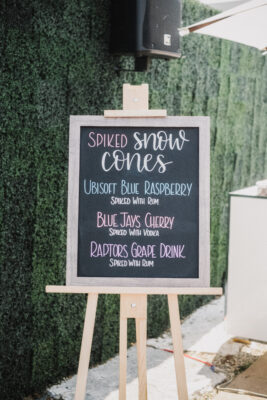 SPIKED snow
cones
UBISOFT BLUE RASPBERRY
SPIKED WITH RUM
BLUE JAYS CHERRY
SPIKED WITH VODKA
RAPTORS GRAPE DRINK
SPIKED WITH RUM